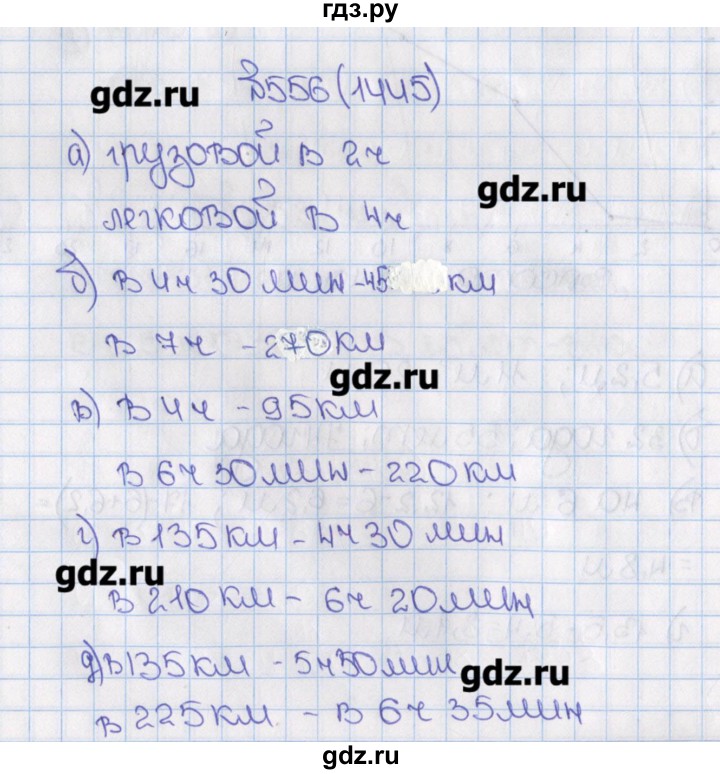 гдз.ру
gdz.ru
№556(1445)
а) грузовой в 2ч
gdz.ru
легковой в 4ч
б) в 4ч 30 мин - 45 км
в 7ч - 270км
gdz.ru
в) в 4ч - 95км
в 6ч 30мин - 220км
г) в 135км - 4ч 30 мин
gdz.ru
в 210км - 6ч 20мин
д) в 135км - 5ч 50мин
gdz.ru
в 225км - в 6ч 35мин
gdz.ru